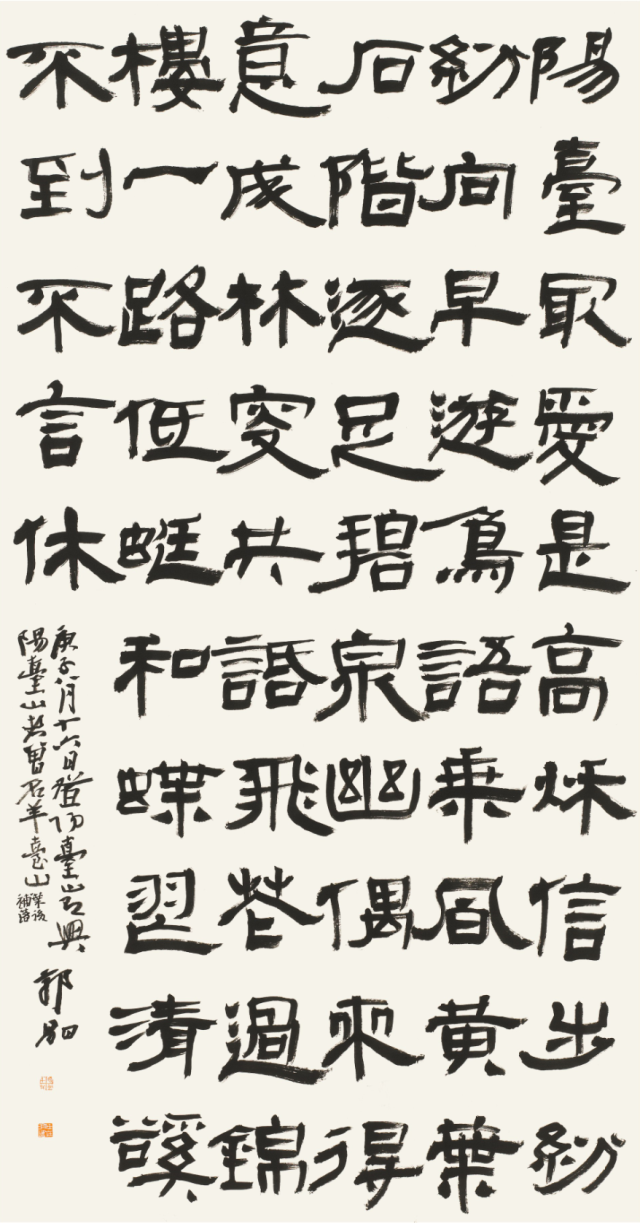 陽臺最愛是高秋信步紛
紛向早遊鳥語乘風黃葉
石階逐足碧泉幽偶來得
意成林叟共話飛花過錦
樓一路低蜓和蝶習清谿
不到不言休
庚子八月十六日登陽臺山有興 郭
陽臺山昔曾名羊臺山
葉後
補落